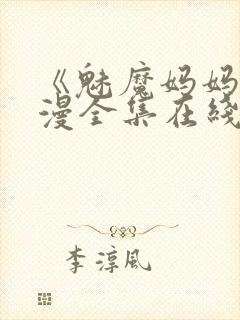 《魅魔妈妈
漫全集在线
李淳风